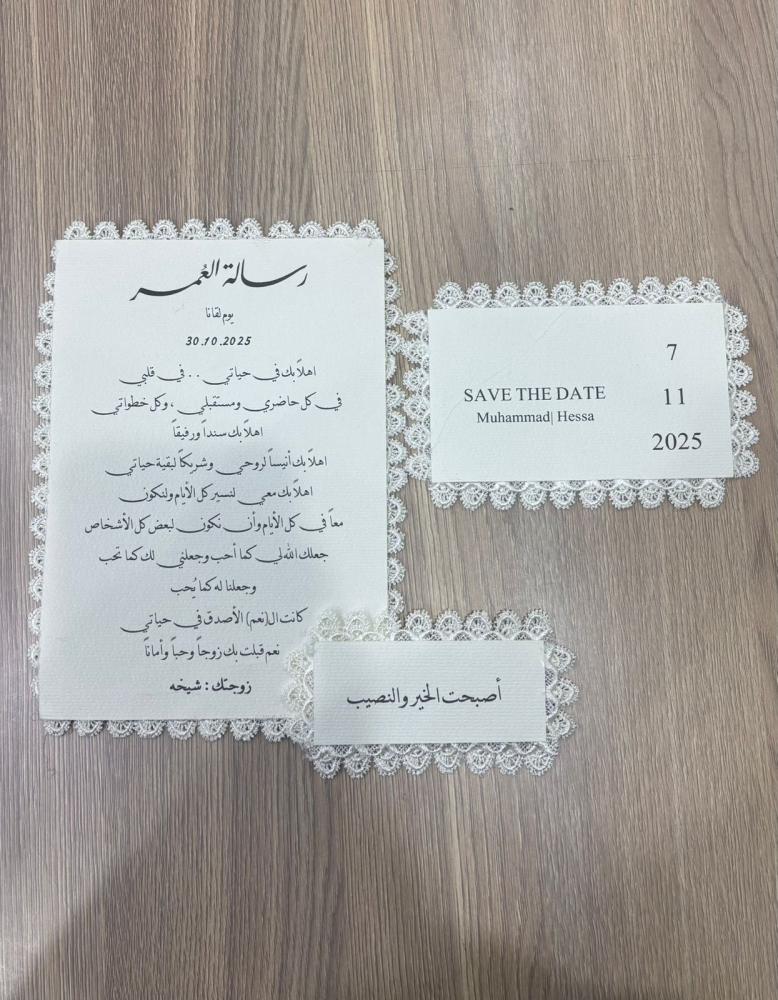 رسالة العُمر
يوم لقانا
30.10.2025
اهلاً بك في حياتي . . في قلبي
في كل حاضري ومستقبلي ، وكل خطواتي
اهلاً بك سنداً ورفيقاً
اهلاً بك أنيساً لروحي وشريكاً لبقية حياتي
اهلاً بك معي لنسير كل الأيام ولنكون
معاً في كل الأيام وأن نكون لبعض كل الأشخاص
جعلك الله لي كما أحب وجعلني لك كما تحب
وجعلنا له كما يُحب
كانت ال(نعم) الأصدق في حياتي
نعم قبلت بك زوجاً وحباً وأماناً
زوجتك : شيخه
SAVE THE DATE
Muhammad| Hessa
7
11
2025
أصبحت الخير والنصيب